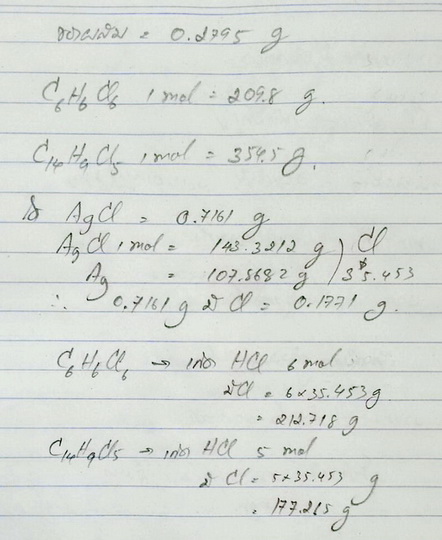 ของผสม = 0.2795 g
C6H6Cl6 1 mol = 209.8 g.
C14H9Cl5 1 mol = 354.5 g.
ได้ AgCl = 0.7161 g
AgCl 1 mol = 143.3212 g ) Cl
Ag = 107.8682 g ) 35.453
∴ 0.7161 g มี Cl = 0.1771 g.
C6H6Cl6 → เกิด HCl 6 mol
มี Cl = 6 x 35.453 g
= 212.718 g
C14H9Cl5 → เกิด HCl 5 mol
มี Cl = 5 x 35.453 g
= 177.265 g